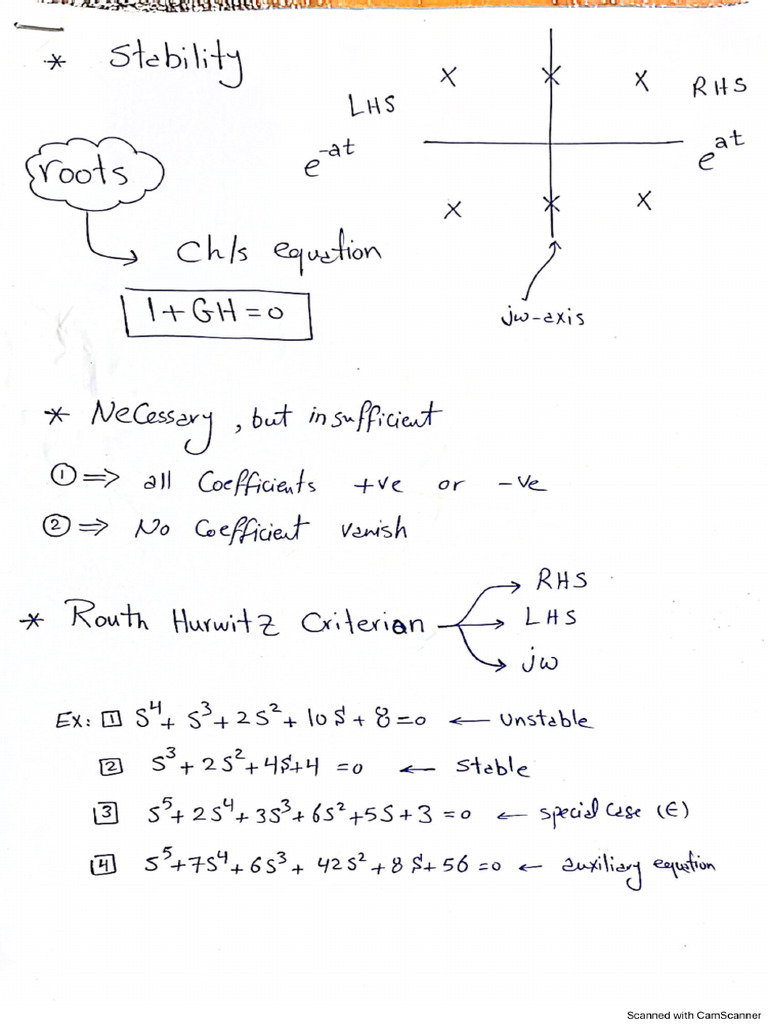 * Stability
LHS
RHS
e^-at
e^at
roots
Ch/s equation
1+GH=0
jw-axis
* Necessary, but insufficient
① ⇒ all Coefficients +ve or -ve
② ⇒ No Coefficient vanish
* Routh Hurwitz Criterion
RHS
LHS
jw
Ex: 1 S⁴ + S³ + 2S² + 10S + 8 = 0 ← Unstable
2 S³ + 2S² + 4S + 4 = 0 ← Stable
3 S⁵ + 2S⁴ + 3S³ + 6S² + 5S + 3 = 0 ← special case (ϵ)
4 S⁵ + 7S⁴ + 6S³ + 42S² + 8S + 56 = 0 ← auxiliary equation
Scanned with CamScanner